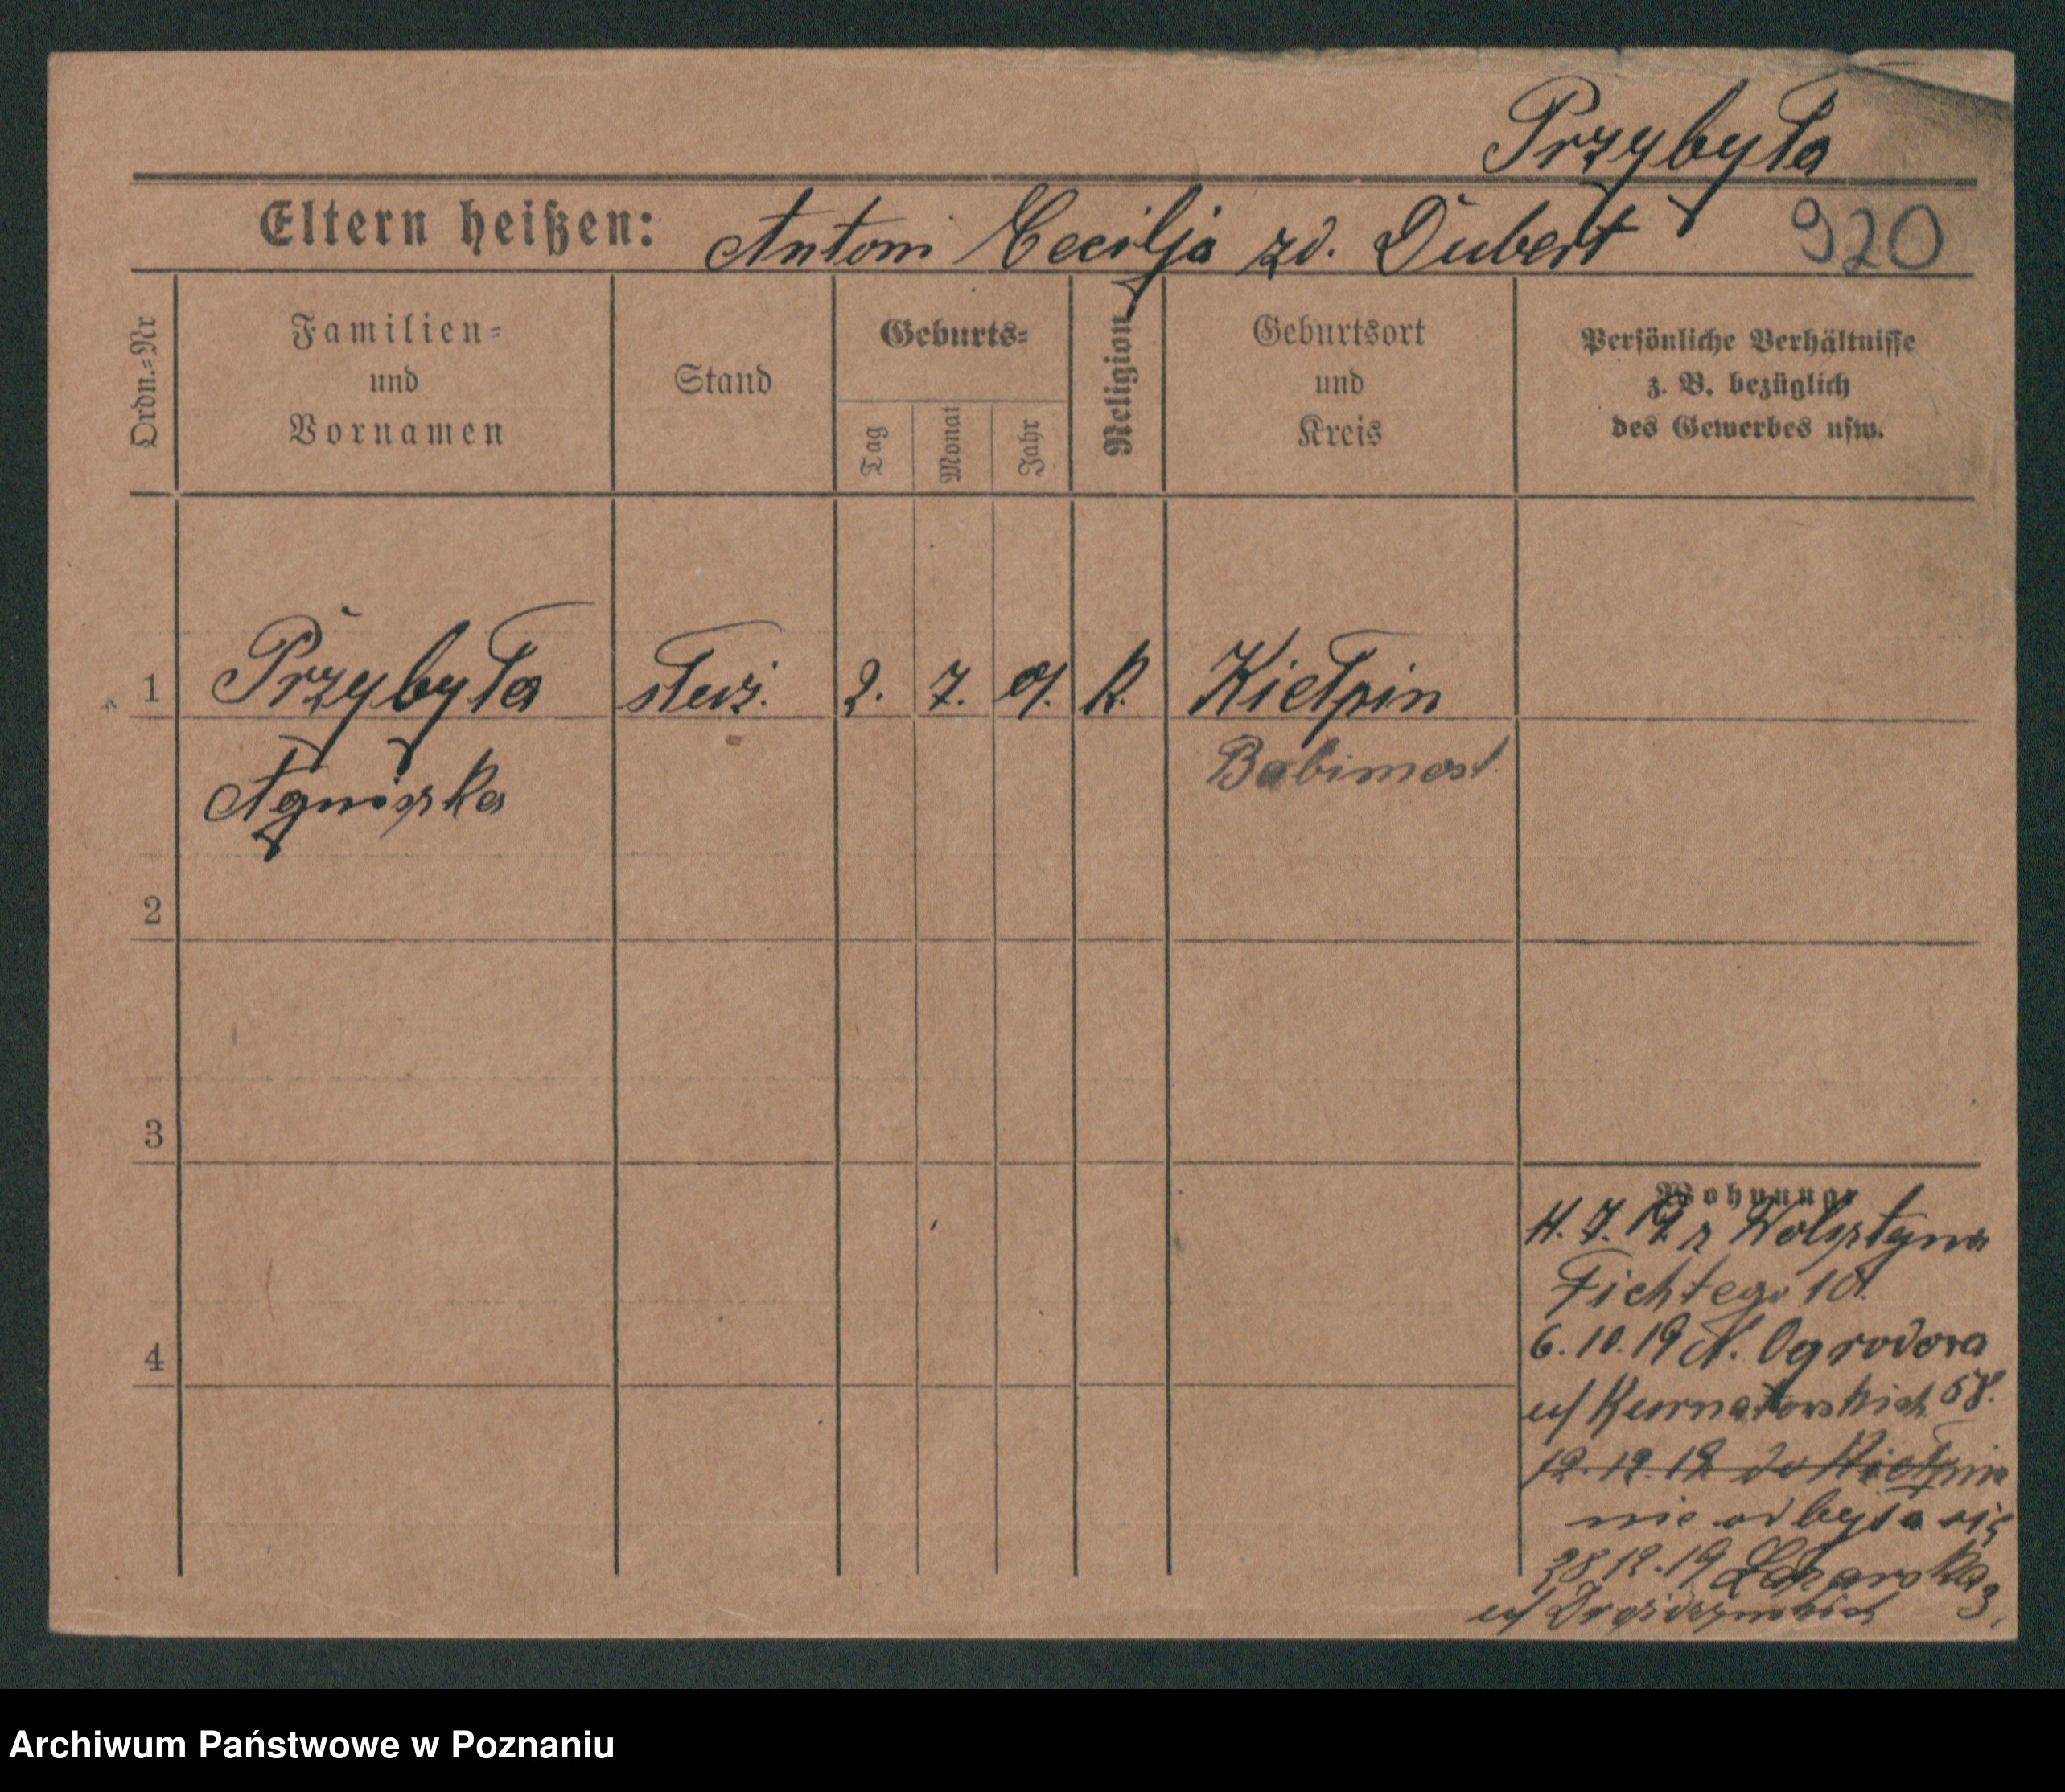 Przybyła
Eltern heißen: Antoni Cecilja zd. Dubert 920
Ordn.=Nr
Familien=
und
Vornamen
Stand
Geburts=
Tag
Monat
Jahr
Religion
Geburtsort
und
Kreis
Persönliche Verhältnisse
z. B. bezüglich
des Gewerbes usw.
1 Przybyła służ. 2. 7. 01. k. Kiełpin
Agniszka Babimost
2
3
4
Wohnung
H. 7. 19. z Wolsztyna
Fichtego 10.
6.10.19 N. Ogrodowa
u/ Kurnatowskich
12.12.19 do Kiełpina
nie odbyła się
28 12.19 Łazarska 3.
u/
Archiwum Państwowe w Poznaniu